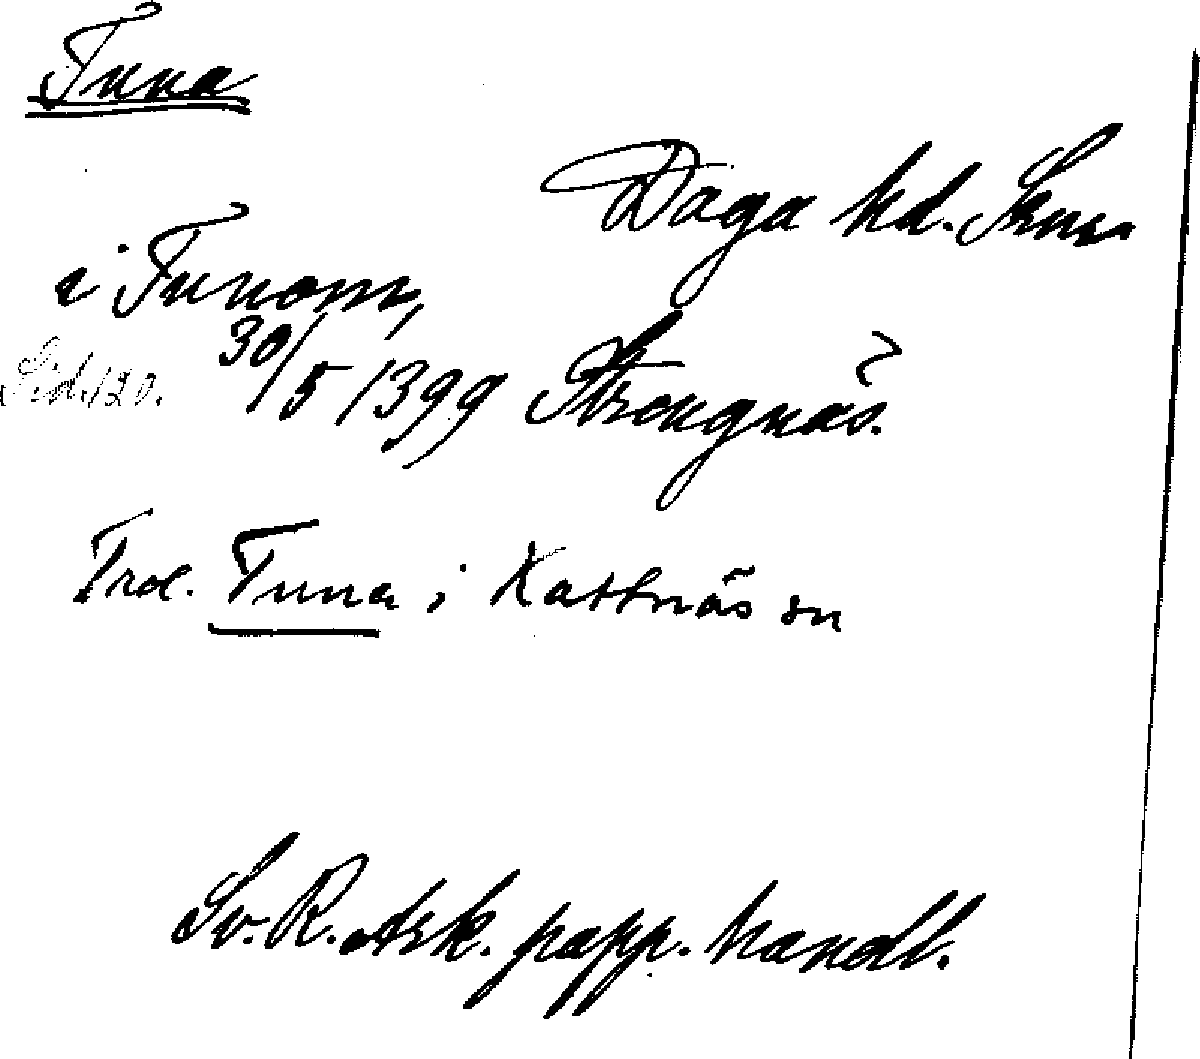 Tuna
Daga hd. Smnl.
i Tunom,
Sid. 120. 30/5 1399 Strengnäs.
Trol. Tuna i Kattnäs sn
Sv. R. Ark. papp. handl.